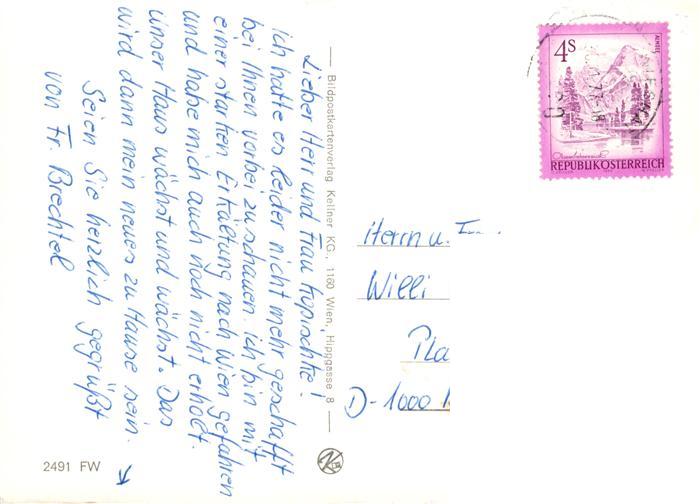 Lieber Herr und Frau Kopischke!
ich hatte es leider nicht mehr geschafft
bei Ihnen vorbei zu schauen. ich bin mit
einer starken Erkältung nach Wien gefahren
und habe mich auch noch nicht erholt.
unser Haus wächst und wächst. Das
wird dann mein neues zu Hause sein.
Seien Sie herzlich gegrüßt
von Fr. Brechtel
Bildpostkartenverlag Kellner KG., 1160 Wien, Hipggasse 8
2491 FW
4 S
ALMSEE
REPUBLIK ÖSTERREICH
Herrn u.
Willi
Pla
D-1000